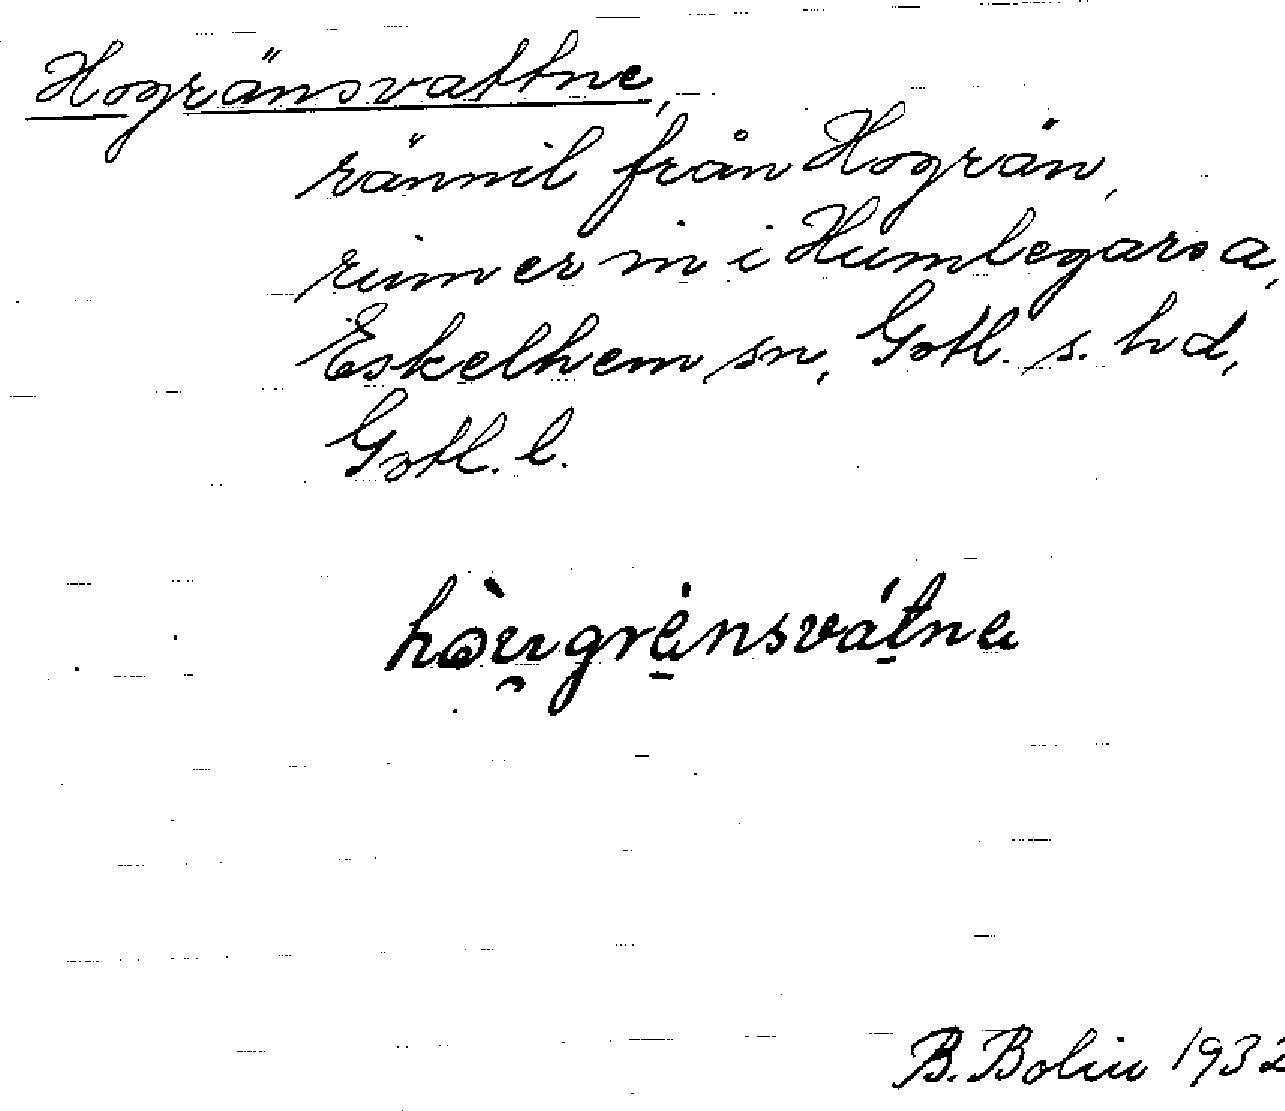 Hogränsvattne,
rännil från Hogrän,
rinner in i Humlegarsa,
Eskelhem sn, Gotl. s. hd,
Gotl. l.
B. Bolin 1932